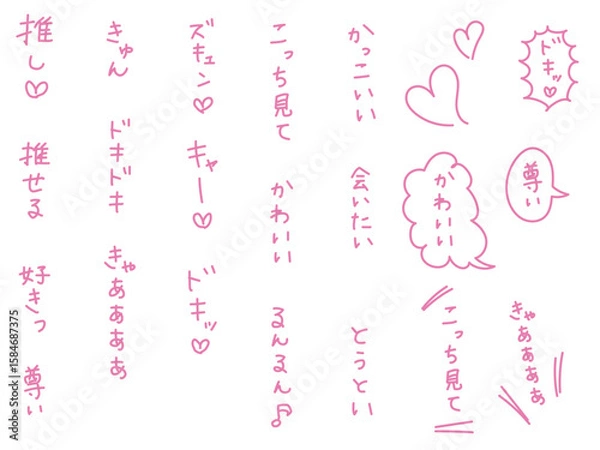 ドキッ♡
尊い
かわいい
きゃあああぁ
こっち見て
かっこいい
会いたい
とうとい
こっち見て
かわいい
るんるん♫
ズキュン♡
キャー♡
ドキッ♡
きゅん
ドキドキ
きゃあああぁ
推し♡
推せる
好きっ
尊い
Adobe Stock | #1584687375